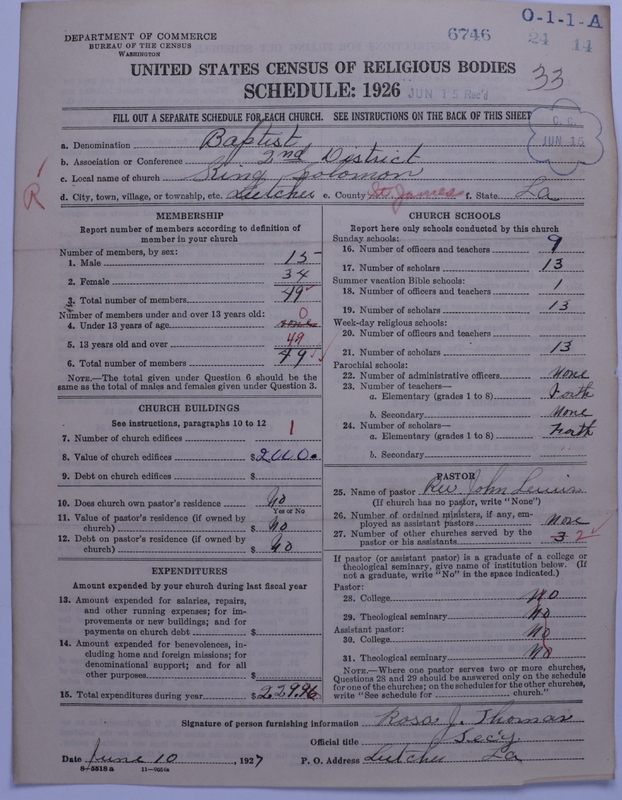 O-1-1-A
DEPARTMENT OF COMMERCE
BUREAU OF THE CENSUS
WASHINGTON
6746 24 14
UNITED STATES CENSUS OF RELIGIOUS BODIES
33
SCHEDULE: 1926
JUN 15 Rec'd
FILL OUT A SEPARATE SCHEDULE FOR EACH CHURCH. SEE INSTRUCTIONS ON THE BACK OF THIS SHEET
C. C.
JUN 16
a. Denomination Baptist
b. Association or Conference 2nd District
c. Local name of church King Solomon
d. City, town, village, or township, etc. Lutcher e. County St. James f. State La
R
MEMBERSHIP
Report number of members according to definition of
member in your church
Number of members, by sex:
1. Male 15
2. Female 34
3. Total number of members 49
Number of members under and over 13 years old:
4. Under 13 years of age 0 none
5. 13 years old and over 49
6. Total number of members 49
NOTE.—The total given under Question 6 should be
the same as the total of males and females given under Question 3.
CHURCH BUILDINGS
See instructions, paragraphs 10 to 12
7. Number of church edifices 1
8. Value of church edifices $2000
9. Debt on church edifices $
10. Does church own pastor's residence No
Yes or No
11. Value of pastor's residence (if owned by
church) $ No
12. Debt on pastor's residence (if owned by
church) $ No
EXPENDITURES
Amount expended by your church during last fiscal year
13. Amount expended for salaries, repairs,
and other running expenses; for im-
provements or new buildings; and for
payments on church debt $
14. Amount expended for benevolences, in-
cluding home and foreign missions; for
denominational support; and for all
other purposes $
15. Total expenditures during year $229.96
CHURCH SCHOOLS
Report here only schools conducted by this church
Sunday schools:
16. Number of officers and teachers 9
17. Number of scholars 13
Summer vacation Bible schools:
18. Number of officers and teachers 1
19. Number of scholars 13
Week-day religious schools:
20. Number of officers and teachers
21. Number of scholars 13
Parochial schools:
22. Number of administrative officers None
23. Number of teachers—
a. Elementary (grades 1 to 8)
b. Secondary None
24. Number of scholars—
a. Elementary (grades 1 to 8)
b. Secondary
PASTOR
25. Name of pastor Rev. John
(If church has no pastor, write "None")
26. Number of ordained ministers, if any, em-
ployed as assistant pastors None
27. Number of other churches served by the
pastor or his assistants 3 2
If pastor (or assistant pastor) is a graduate of a college or
theological seminary, give name of institution below. (If
not a graduate, write "No" in the space indicated.)
Pastor:
28. College No
29. Theological seminary No
Assistant pastor:
30. College No
31. Theological seminary No
NOTE.—Where one pastor serves two or more churches,
Questions 28 and 29 should be answered only on the schedule
for one of the churches; on the schedules for the other churches,
write "See schedule for church."
Signature of person furnishing information Rosa J. Thomas
Official title Sec'y
Date June 10, 1927 P. O. Address Lutcher La
8-5518a 11-9664